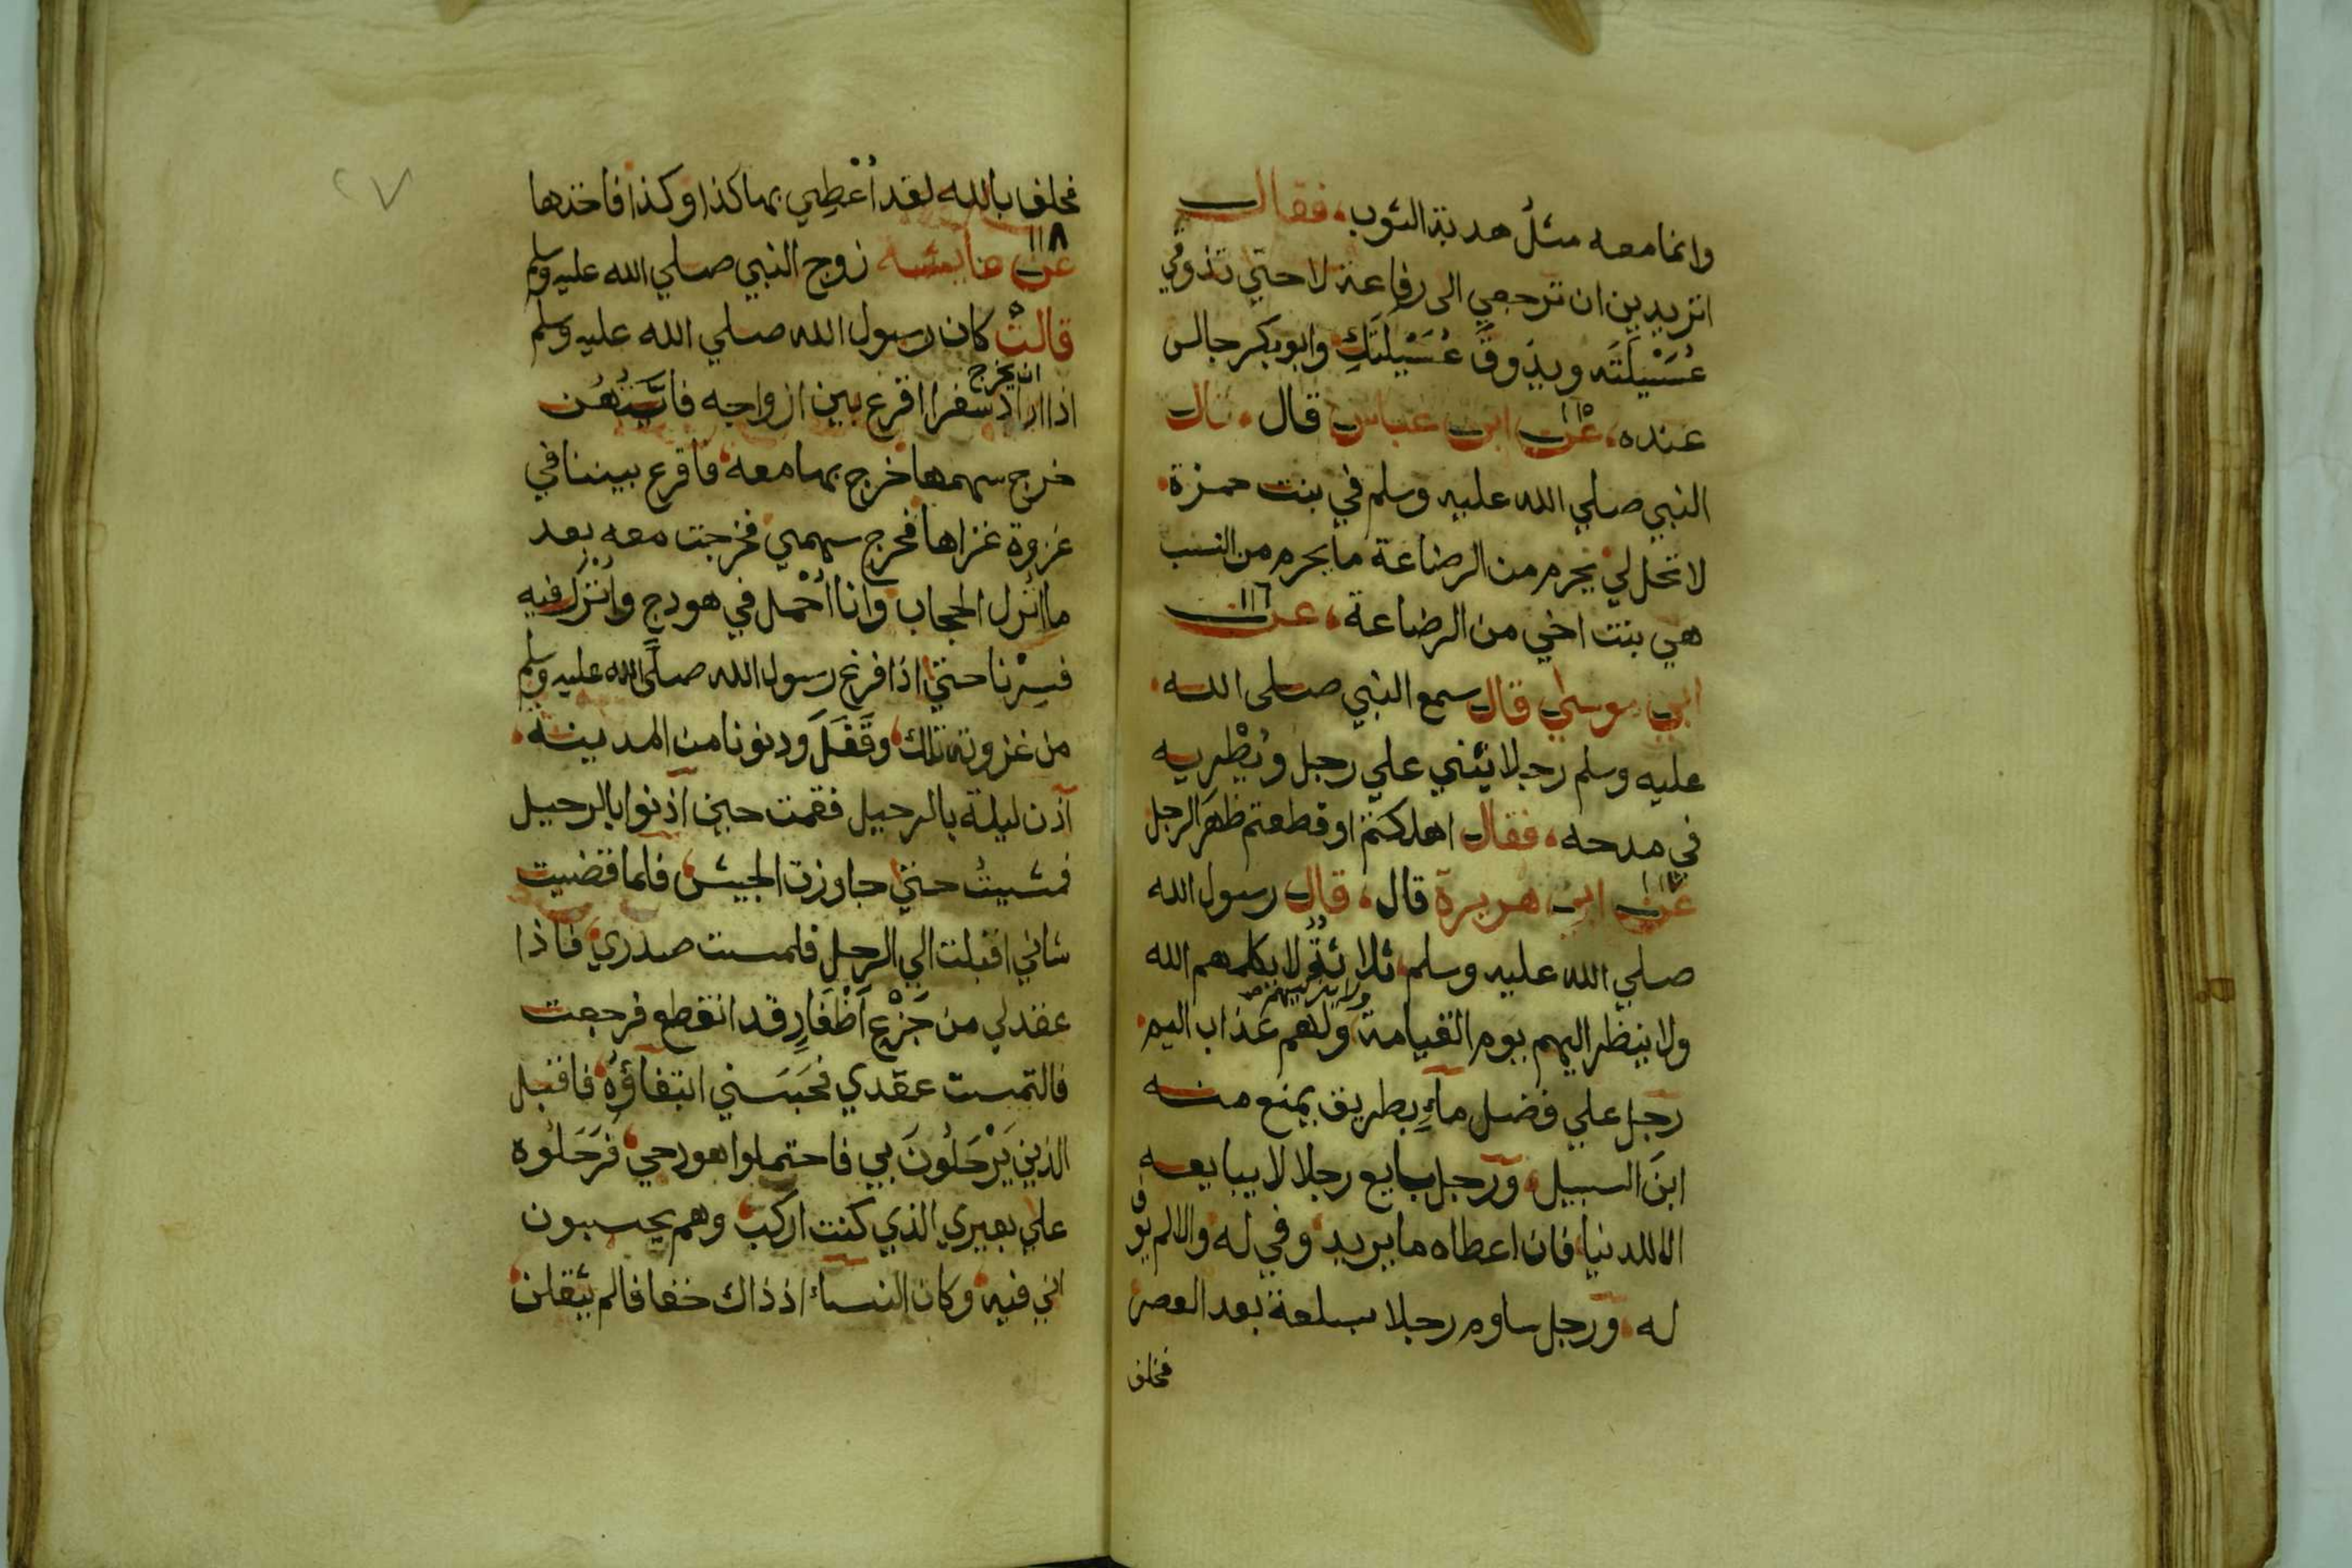 وانما معه مثل هدبة الثوب، فقال
اتريدين ان ترجعي الى رفاعة لا حتي تذوقي
عُسَيْلَتَه ويذوقَ عُسَيْلَتَكِ وابو بكر جالس
عنده، عن ١١٥ ابن عباس قال، قال
النبي صلي الله عليه وسلم في بنت حمزة
لا تحل لي يحرم من الرضاعة ما يحرم من النسب
هي بنت اخي من الرضاعة، عن ١١٦
ابي موسي قال سمع النبي صلى الله
عليه وسلم رجلا يثني علي رجل ويُطْرِيه
في مدحه، فقال اهلكتم او قطعتم ظهَر الرجل
عن ١١٧ ابي هريرة قال، قال رسول الله
صلي الله عليه وسلم، ثلاثةٌ لا يكلمهم الله
ولا ينظر اليهم يوم القيامة ولا يزكيهم ولهم عذاب اليم
رجل علي فضل ماءٍ بطريق يمنع منه
ابنَ السبيل، ورجل بايع رجلا لا يبايعه
الا للدنيا، فان اعطاه ما يريد وفي له والا لم يوف
له، ورجل ساوم رجلا بسلعة بعد العصر
فحلف
٢٧
فحلف بالله لقد اُعْطِي بها كذا وكذا فاخذها
عن ١١٨ عايشه زوج النبي صلي الله عليه وسلم
قالتْ كان رسول الله صلي الله عليه وسلم
اذا اراد ان يخرج سفرا اقرع بين ازواجه فايَّتُهُن
خرج سهمها خرج بها معه، فاقرع بيننا في
غزوة غزاها فخرج سهمي فخرجت معه بعد
ما اُنْزِل الحجاب وانا اُحْمل في هودج واُنْزَل فيه
فسِرْنا حتي اذا فرغ رسول الله صلَّى الله عليه وسلم
من غزوته تلك، وقَفَلَ ودنونا من المدينة،
آذن ليلة بالرحيل فقمت حين آذنوا بالرحيل
فمشيتُ حتي جاوزت الجيش، فلما قضيت
شاني اقبلت الي الرحل فلمست صدري، فاذا
عقد لي من جَزْعِ اَظْفَارٍ قد انقطع فرجعت
فالتمست عقدي فحَبَسَني ابتغاؤُهُ، فاقبل
الذين يَرْحَلُونَ بي فاحتملوا هودجي، فَرَحَلُوه
علي بعيري الذي كنت اركب، وهم يحسبون
اني فيه، وكان النساء اذ ذاك خفافا لم يثقلن،